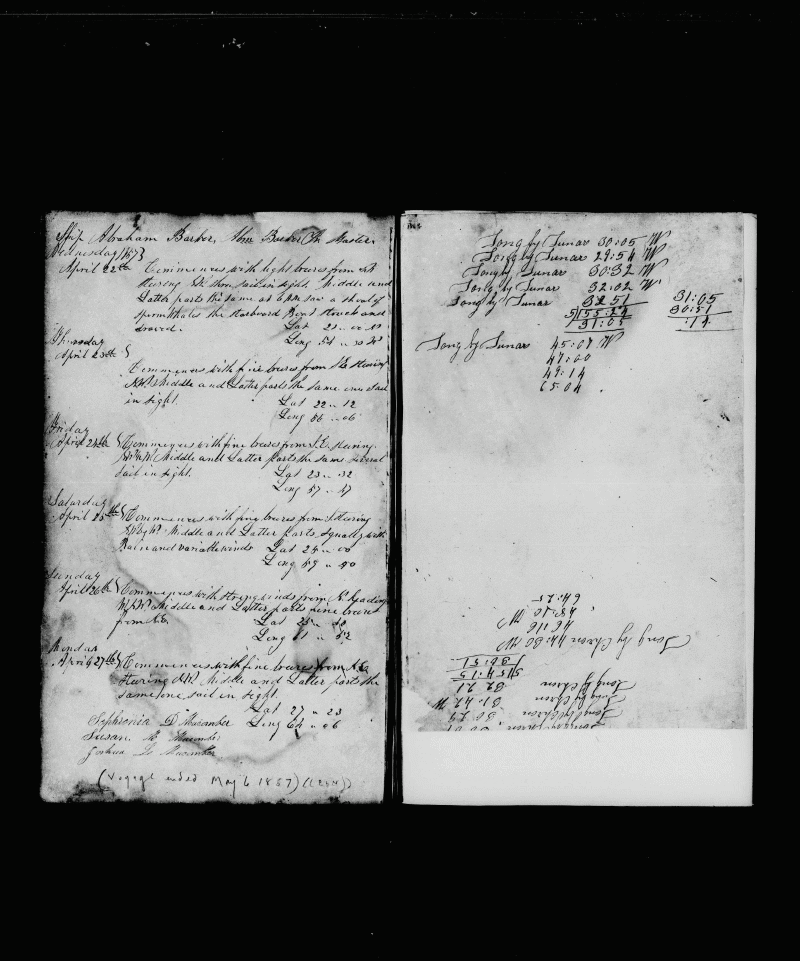 Ship Abraham Barker, Abm Barker On Master
Wednesday 1857}
April 22th Commences with light breeses from
Steering NW three sail in sight. Middle and
Latter parts the same at 6 AM saw a shoal of
Sperm Whales the Starboard Boat Struck and
Lat 21 .. 00
Long 54 .. 30 W
Thursday
April 23th }
Commences with fine breeses from Steering
Middle and Latter parts the same one Sail
in sight. Lat 22 .. 12
Long 56 .. 06
Friday
April 24th { Commences with fine breeses from S.E. Steering
Middle and Latter parts the same several
Sail in sight. Lat 23 .. 32
Long 57 .. 47
Saturday
April 25th { Commences with fine breeses from Steering
Middle and Latter parts Squally with
Rain and variable winds Lat 24 .. 00
Long 59 .. 40
Sunday
April 26th { Commences with Strong winds from Heading
Middle and Latter parts fine breeses
from Lat 25
Long 61 .. 52
Monday
April 27th { Commences with fine breeses from
Steering Middle and Latter parts the
same one sail in sight.
Lat 27 .. 23
Sophronia D Macomber Long 64 .. 06
Susan Macomber
Joshua Macomber
(Voyage ended May 6 1857)
Long by Lunar 30:05 W
Long by Lunar 29:54 W
Long by Lunar 30:32 W
Long by Lunar 32:02 W
Long by Lunar 32 51 31:05
5)155:24 30:51
31:05 :14
Long by Lunar 45:07 W
47:00
49:14
65 04
64:25
48:10
46:16 W
Long by Chron 44:30 W
30:51
5)154:15
Long by Chron 32 21
Long by Chron 31:42 W
Long by Chron 30:29